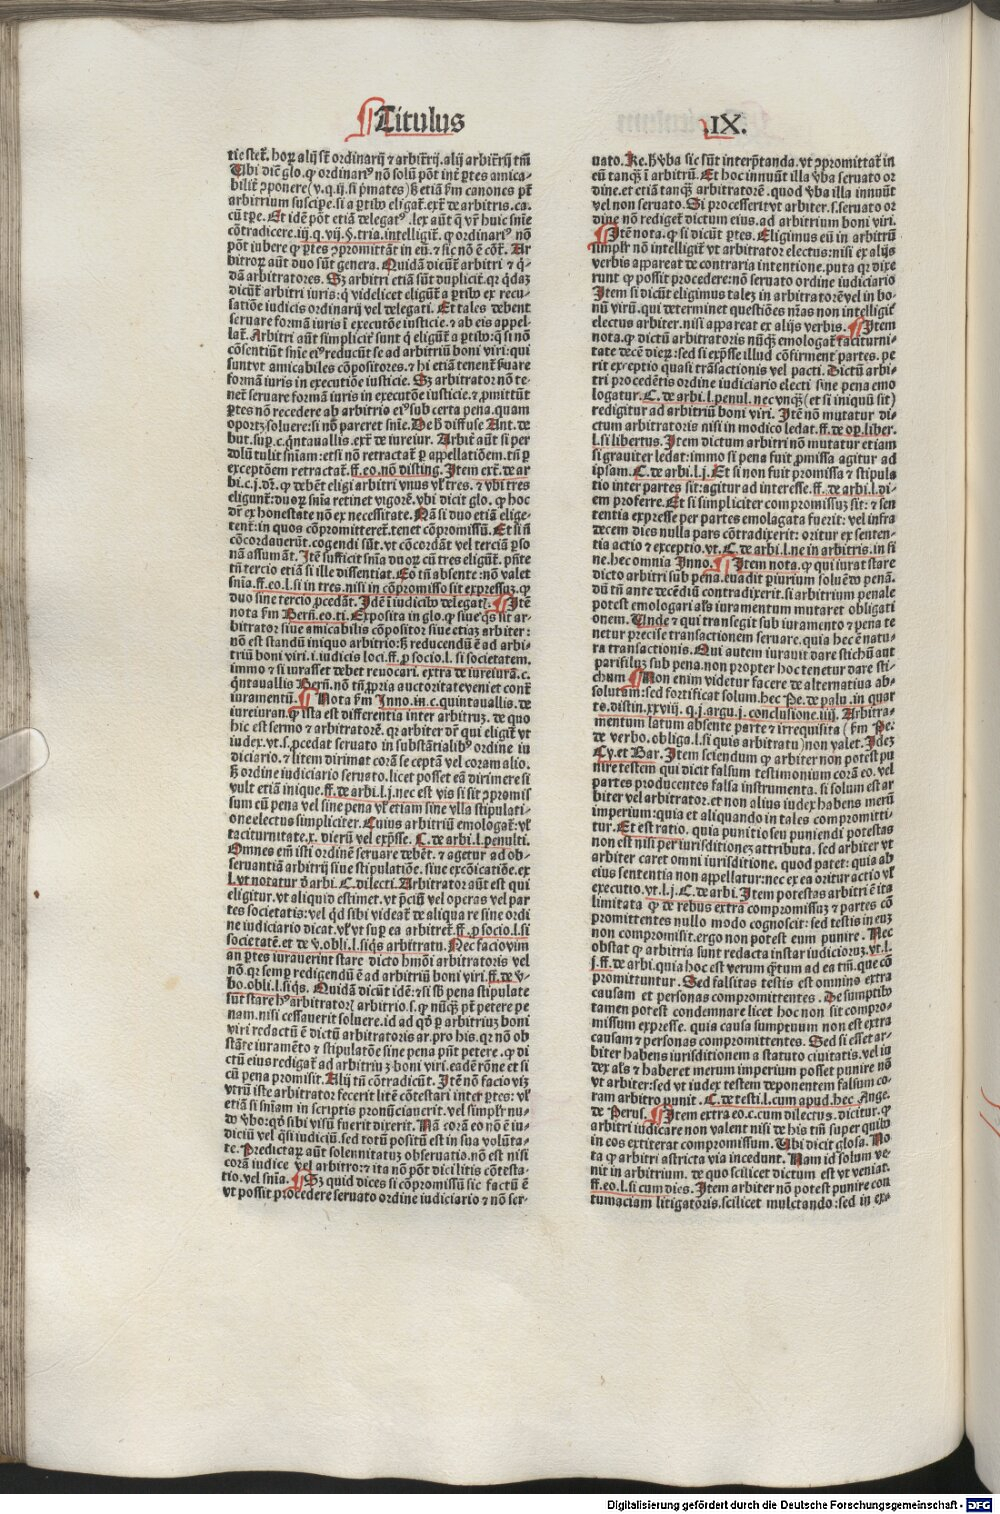 ¶Titulus
.IX.
tie steť. hoꝝ alij sť ordinarij ⁊ arbiťrij. alij arbiťrij tm̄
Tibi dicit̄ glo. ꝙ ordinariꝰ nō solū pōt inť ꝑtes amica-
biliť ꝯponere (v. q. ij. si pⁱmates) sꝫ etiā fm̄ canones pt̄
arbitrium suscipe. si a ꝑtibꝰ eligať. exť de arbitris. ca.
cū tꝑe. Et idē pōt etiā delegatꝰ. lex aūt q̄ vr̄ huic sn̄ie
cōtradicere. iij. q. vij. §. tria. intelligiť. ꝙ ordinariꝰ nō
pōt iubere ꝙ ꝑtes ꝓmittāt in eū. ⁊ sic nō ē cōť. Ar
bitroꝝ aūt duo sūt genera. Quidā dicūť arbitri ⁊ q̄-
dā arbitratores. Sꝫ arbitri etiā sūt duplicit̄. qꝛ q̄daꝫ
dicūť arbitri iuris: q̄ videlicet eligūť a ꝑtibꝰ ex recu-
satiōe iudicis ordinarij vel delegati. Et tales debent
seruare formā iuris ī executōe iusticie. ⁊ ab eis appel-
lať. Arbitri aūt simplicit̄ sunt q̄ eligūť a ꝑtibꝰ: q̄ si nō
cōsentiūt sn̄ie eiꝰ reducūt se ad arbitriū boni viri: qui
suntvt amicabiles cōpositores. ⁊ hi etiā tenenť ẜuare
formā iuris in executiōe iusticie. Sꝫ arbitrator nō te-
neť seruare formā iuris in executōe iusticie. ⁊ ꝓmittūt
ꝑtes nō recedere ab arbitrio eiꝰ sub certa pena. quam
oportꝫ soluere: si nō pareret sn̄ie. De h̄ diffuse Ant. de
but. suꝑ. c. q̄ntauallis. exť de iureiur. Arbiť aūt si per
dolū tulit sn̄iam: etsi nō retractať ꝑ appellatiōem. tn̄ ꝑ
exceptōem retractať. ff. eo. nō disting. Item exť. de ar
bi. c. j. dꝛ. ꝙ debēt eligi arbitri vnus vl̄ tres. ⁊ vbi tres
eligunť: duoꝝ sn̄ia retinet vigorē. vbi dicit glo. ꝙ hoc
dr̄ ex honestate nō ex necessitate. Nā si duo etiā elige-
tenť: in quos cōpromittereť. tenet cōpromissū. Et si n̄
cōcordauerūt. cogendi sūt. vt cōcordāt vel terciā ꝑso
nā assumāt. Itē sufficit sn̄ia duoꝝ cū tres eligūť. pn̄te
tn̄ tercio etiā si ille dissentiat. Eo tn̄ absente: nō valet
sn̄ia. ff. eo. l. si in tres. nisi in cōpromisso sit expressuꝫ. ꝙ
duo sine tercio ꝓcedāt. Idē ī iudicibꝰ delegatꝭ. ¶Itē
nota fm̄ Bern̄. eo. ti. Exposita in glo. ꝙ siue q̄s sit ar-
bitrator siue amicabilis cōpositor siue etiaꝫ arbiter:
nō est standū iniquo arbitrio: sꝫ reducendū ē ad arbi-
triū boni viri. i. iudicis loci. ff. ꝓ socio. l. si societatem.
immo ⁊ si iurasset debet reuocari. extra de iureiurā. c.
q̄ntauallis Bern̄. nō tn̄ ꝓpria auctoritate veniet conť
iuramentū. ¶ Nota fm̄ Inno. in. c. quintauallis. de
iureiuran. ꝙ ista est differentia inter arbitruꝫ. de quo
hic est sermo ⁊ arbitratorē. qꝛ arbiter dr̄ qui eligiť vt
iudex. vt. s. ꝓcedat seruato in substātialibꝰ ordine iu
diciario. ⁊ litem dirimat corā se ceptā vel coram alio.
sꝫ ordine iudiciario seruato. licet posset eā dirimere si
vult etiā inique. ff. de arbi. l. j. nec est vis si sit ꝯpromis
sum cū pena vel sine pena vl̄ etiam sine vlla stipulati-
one electus simpliciter. Cuius arbitriū emologať: vl̄
taciturnitate. x. dierū vel exp̄sse. C. de arbi. l. penulti.
Omnes em̄ isti ordinē seruare debēt. ⁊ agetur ad ob-
seruantiā arbitrij siue stipulatiōe. siue excōicatiōe. ex
l. vt notatur d̄ arbi. C. dilecti. Arbitrator aūt est qui
eligitur. vt aliquid estimet. vt p̄ciū vel operas vel par
tes societatis: vel q̄d sibi videať de aliqua re sine ordi
ne iudiciario dicat. vl̄ vt suꝑ ea arbitreť. ff. ꝓ socio. l. si
societatē. et de v̄. obli. l. si q̄s arbitratu. Nec facio vim
an ꝑtes iurauerint stare dicto hmōi arbitratoris vel
nō. qꝛ semꝑ redigendū ē ad arbitriū boni viri. ff. de v̄-
bo. obli. l. si q̄s. Quidā dicūt idē: ⁊ si sb̄ pena stipulate
sūt stare hꝰ arbitratorꝭ arbitrio. s. ꝙ nūꝙꝫ pt̄ petere pe
nam. nisi cessauerit soluere. id ad qd̄ ꝑ arbitriuꝫ boni
viri redactū ē dictū arbitratoris ar. pro his. qꝛ nō ob
stāte iuramēto ⁊ stipulatōe sine pena pn̄t petere. ꝙ di
ctū eius redigať ad arbitriuꝫ boni viri. eadē rōne et si
cū pena promisit. Alij tn̄ cōtradicūt. Itē nō facio viꝫ
vtrū iste arbitrator fecerit litē cōtestari inter ꝑtes: vl̄
etiā si sn̄iam in scriptis pronūciauerit. vel simplr̄ nu-
do v̄bo: qd̄ sibi visū fuerit dixerit. Nā corā eo nō ē iu-
diciū vel q̄si iudiciū. sed totū positū est in sua volūta-
te. Predictaꝝ aūt solennitatuꝫ obseruatio. nō est nisi
corā iudice vel arbitro: ⁊ ita nō pōt dici litis cōtesta-
tio. vel sn̄ia. ¶Sꝫ quid dices si cōpromissū sic factū ē
vt possit procedere seruato ordine iudiciario ⁊ nō ser-
uato. Re. h̄ v̄ba sic sūt interp̄tanda. vt ꝯpromittat̄ in
eū tanqꝫ ī arbitrū. Et hoc innuūt illa v̄ba seruato or
dine. et etiā tanqꝫ arbitratorē. quod v̄ba illa innuūt
vel non seruato. Si processerit vt arbiter. s. seruato or
dine non rediget̄ dictum eius. ad arbitrium boni viri.
¶Itē nota. ꝙ si dicūt ꝑtes. Eligimus eū in arbitrū
simplr̄ nō intelligit̄ vt arbitrator electus: nisi ex alijs
verbis appareat de contraria intentione. puta qꝛ dixe
runt ꝙ possit procedere: nō seruato ordine iudiciario
Item si dicūt eligimus talez in arbitratorē vel in bo-
nū virū. qui determinet questiōes nr̄as non intelligit̄
electus arbiter. nisi appareat ex alijs verbis. ¶Item
nota. ꝙ dictū arbitratoris nūꝙꝫ emologať taciturni-
tate decē dieꝝ: sed si exp̄sse illud cōfirment partes. pe
rit exceptio quasi trāsactionis vel pacti. Dictū arbi-
tri procedētis ordine iudiciario electi sine pena emo
logatur. C. de arbi. l. penul. nec vnqꝫ (et si iniquū sit)
redigitur ad arbitriū boni viri. Itē nō mutatur di-
ctum arbitratoris nisi in modico ledat. ff. de oꝑ. liber.
l. si libertus. Item dictum arbitri nō mutatur etiam
si grauiter ledat: immo si pena fuit ꝓmissa agitur ad
ipsam. C. de arbi. l. j. Et si non fuit promissa ⁊ stipula
tio inter partes sit: agitur ad interesse. ff. de arbi. l. di-
em proferre. Et si simpliciter compromissuꝫ sit: ⁊ sen
tentia expresse per partes emolagata fuerit: vel infra
decem dies nulla pars cōtradixerit: oritur ex senten-
tia actio ⁊ exceptio. vt. C. de arbi. l. ne in arbitris. in fi
ne. hec omnia Inno. ¶Item nota. ꝙ qui iurat stare
dicto arbitri sub pena. euadit ꝑiurium soluēdo penā.
dū tn̄ ante decēdiū contradixerit. si arbitrium penale
potest emologari als̄ iuramentum mutaret obligati
onem. Unde ⁊ qui transegit sub iuramento ⁊ pena te
netur precise transactionem seruare. quia hec ē natu-
ra transactionis. Qui autem iurauit dare stichū aut
parifiluꝫ sub pena. non propter hoc tenetur dare sti-
chum ¶Non enim videtur facere de alternatiua ab-
solutam: sed fortificat solum. hec Pe. de palu. in quar
to. distin. xxviij. q. j. argu. j. conclusione. iiij. Arbitra-
mentum latum absente parte ⁊ irrequisita ( fm̄ Pe.
de verbo. obliga. l. si quis arbitratu) non valet. Idez
Cy. et Bar. Item sciendum ꝙ arbiter non potest pu
nire testem qui dicit falsum testimonium corā eo. vel
partes producentes falsa instrumenta. si solum est ar
biter vel arbitrator. et non alius iudex habens merū
imperium: quia et aliquando in tales compromitti-
tur. Et est ratio. quia punitio seu puniendi potestas
non est nisi per iurisditionez attributa. sed arbiter vt
arbiter caret omni iurisditione. quod patet: quia ab
eius sententia non appellatur: nec ex ea oritur actio vl̄
executio. vt. l. j. C. de arbi. Item potestas arbitri ē ita
limitata ꝙ de rebus extra compromissuꝫ ⁊ partes cō
promittentes nullo modo cognoscit: sed testis in euꝫ
non compromisit. ergo non potest eum punire. Nec
obstat ꝙ arbitria sunt redacta instar iudicioruꝫ. vt. l.
j. ff. de arbi. quia hoc est verum q̄tum ad ea tm̄. que cō
promittuntur. Sed falsitas testis est omnino extra
causam et personas compromittentes. De sumptibꝰ
tamen potest condemnare licet hoc non sit compro-
missum expresse. quia causa sumptuum non est extra
causam ⁊ personas compromittentes. Sed si esset ar-
biter habens iurisditionem a statuto ciuitatis. vel iu
dex als̄ ⁊ haberet merum imperium posset punire nō
vt arbiter: sed vt iudex testem deponentem falsum co-
ram arbitro punit. C. de testi. l. cum apud. hec Ange.
de Perus. ¶Item extra eo. c. cum dilectus. dicitur. ꝙ
arbitri iudicare non valent nisi de his tm̄ super quibꝰ
in eos extiterat compromissum. Ubi dicit glosa. No
ta ꝙ arbitri astricta via incedunt. Nam id solum ve-
nit in arbitrium. de quo scilicet dictum est vt veniat.
ff. eo. l. si cum dies. Item arbiter nō potest punire con
tumaciam litigatoris. scilicet mulctando: sed in ex-
Digitalisierung gefördert durch die Deutsche Forschungsgemeinschaft - DFG